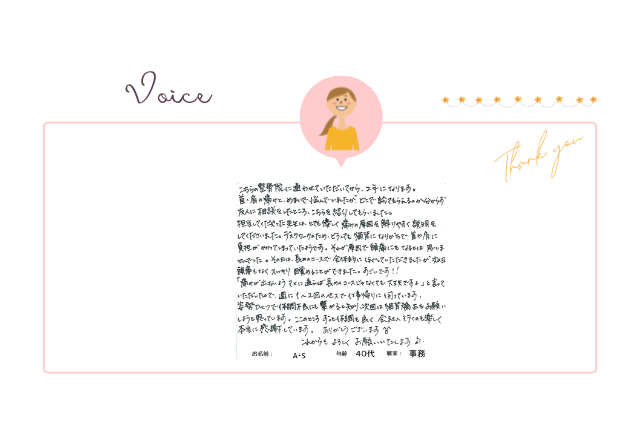 Voice
Thank you
こちらの整骨院に通わせていただいてから、2年になります。
首・肩の痛みと、めまいで悩んでいましたが、どこで診てもらえるのか分からず
友人に相談をしたところ、こちらを紹介してもらいました。
担当してくださった先生は、とても優しく痛みの原因を解りやすく説明を
してくださいました。デスクワークのため、どうしても猫背になりがちで首や肩に
負担がかかってしまっていたようです。それが原因で頭痛にもなるとは思いま
せんでした。その日は、長めのコースで全体的にほぐしていただきましたが、次の日
頭痛もなくスッキリ目覚めることができました。すごいです!!
「痛みが出ないようマメに通えば長めのコースじゃなくても大丈夫ですよ」と言って
いただいたので、週に1〜2回のペースで仕事帰りに伺っています。
姿勢ひとつで体調不良にも繋がると知り、次回は猫背矯正もお願い
しようと思っています。このところずっと体調も良く、会社へ行くのも楽しく
本当に感謝しています。ありがとうございます
これからもよろしくお願いいたします♪
お名前: A・S 年齢 40代 職業: 事務